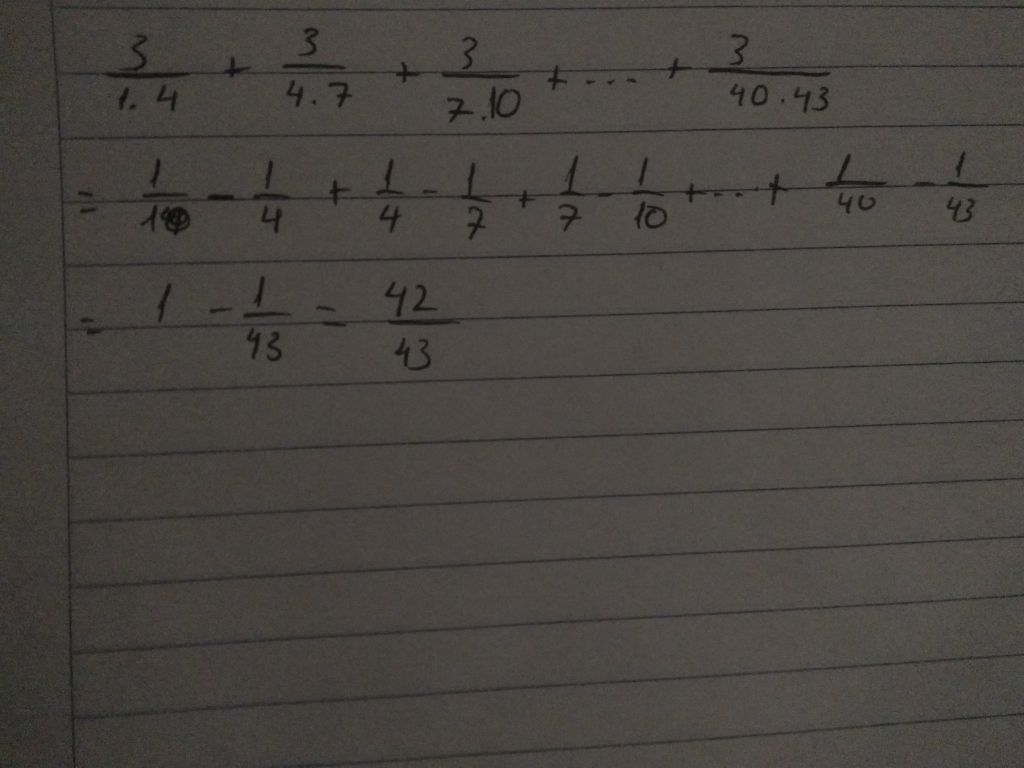 3/1.4 + 3/4.7 + 3/7.10 + ... + 3/40.43
= 1/1 - 1/4 + 1/4 - 1/7 + 1/7 - 1/10 + ... + 1/40 - 1/43
= 1 - 1/43 = 42/43